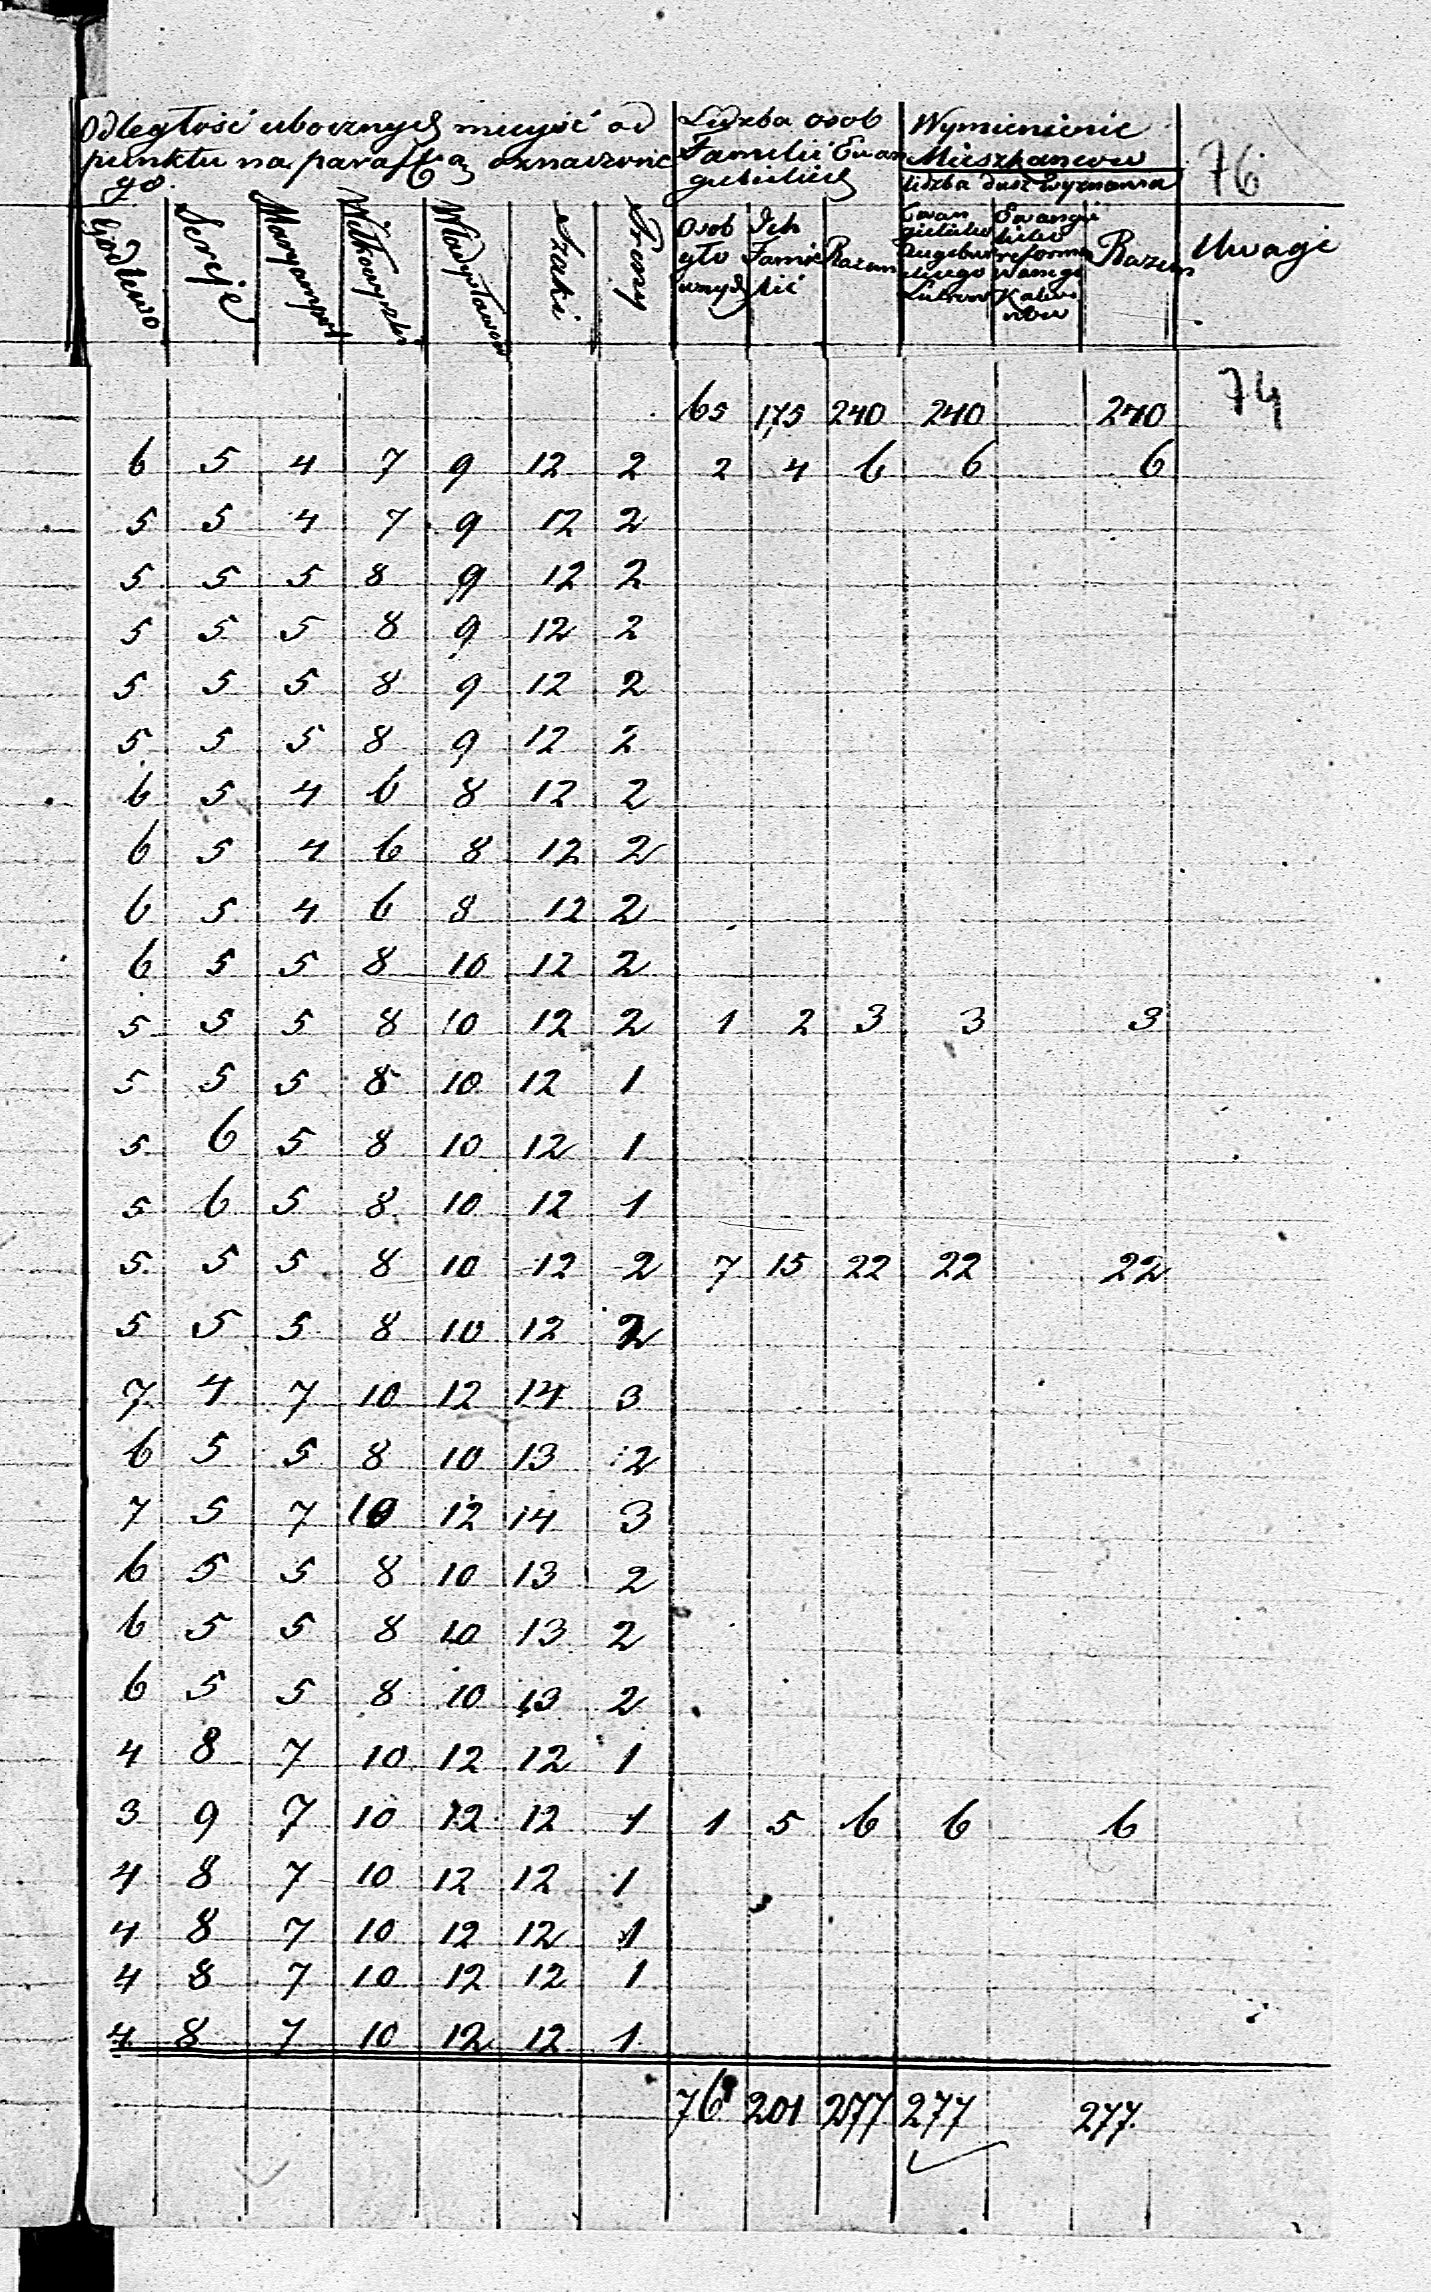 Odległość ubocznych mieysc od Liczba osob Wymienienie
punktu na parafią oznaczone Familii Ewan Mieszkancow 76
go. gielickich liczba dusz Wyznania
Godlewo Sereje Maryampol Wiłkowyszki Władysławow Szaki Preny Osob Ich Razem Ewan Ewangie Razem Uwagi
65 175 240 240 240 74
6 5 4 7 9 12 2 2 4 6 6 6
5 5 4 7 9 12 2
5 5 5 8 9 12 2
5 5 5 8 9 12 2
5 5 5 8 9 12 2
5 5 5 8 9 12 2
6 5 4 6 8 12 2
6 5 4 6 8 12 2
6 5 4 6 8 12 2
6 5 5 8 10 12 2
5 5 5 8 10 12 2 1 2 3 3 3
5 5 5 8 10 12 1
5 6 5 8 10 12 1
5 6 5 8 10 12 1
5 5 5 8 10 12 2 7 15 22 22 22
5 5 5 8 10 12 2
7 4 7 10 12 14 3
6 5 5 8 10 13 2
7 5 7 10 12 14 3
6 5 5 8 10 13 2
6 5 5 8 10 13 2
6 5 5 8 10 13 2
4 8 7 10 12 12 1
3 9 7 10 12 12 1 1 5 6 6 6
4 8 7 10 12 12 1
4 8 7 10 12 12 1
4 8 7 10 12 12 1
4 8 7 10 12 12 1
76 201 277 277 277